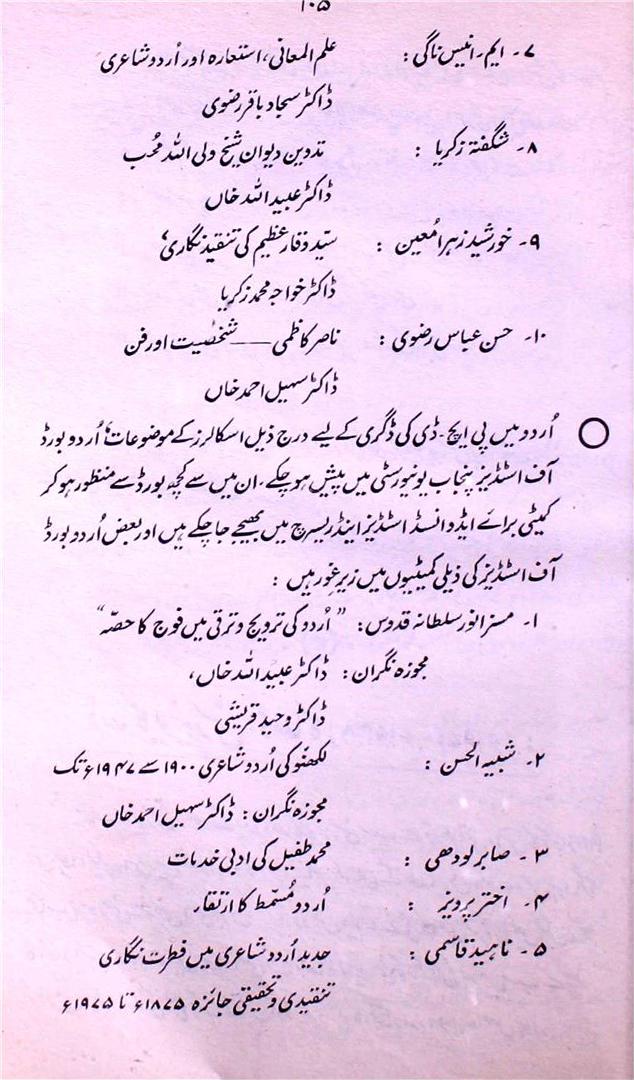 ۱۰۵
۷۔ ایم۔ انیس ناگی : علم المعانی، استعارہ اور اُردو شاعری
ڈاکٹر سجاد باقر رضوی
۸۔ شگفتہ زکریا : تدوین دیوان شیخ ولی اللہ محُب
ڈاکٹر عبید اللہ خاں
۹۔ خورشید زہرا مُعین : سیّد وقار عظیم کی تنقید نگاری،
ڈاکٹر خواجہ محمد زکریا
۱۰۔ حسن عباس رضوی : ناصر کاظمی —— شخصیت اور فن
ڈاکٹر سہیل احمد خاں
○ اُردو میں پی ایچ۔ ڈی کی ڈگری کے لیے درج ذیل اسکالرز کے موضوعات، اُردو بورڈ
آف اسٹڈیز پنجاب یونیورسٹی میں پیش ہو چکے۔ ان میں سے کچھ بورڈ سے منظور ہو کر
کمیٹی برائے ایڈوانسڈ اسٹڈیز اینڈ ریسرچ میں بھیجے جا چکے ہیں اور بعض اُردو بورڈ
آف اسٹڈیز کی ذیلی کمیٹیوں میں زیرِ غور ہیں :
۱۔ مسز انور سلطانہ قدوس : "اُردو کی ترویج و ترقی میں فوج کا حصّہ"
مجوزہ نگران : ڈاکٹر عبید اللہ خاں،
ڈاکٹر وحید قریشی
۲۔ شبیہ الحسن : لکھنؤ کی اُردو شاعری ۱۹۰۰ سے ۱۹۴۷ء تک
مجوزہ نگران : ڈاکٹر سہیل احمد خاں
۳۔ صابر لودھی : محمد طفیل کی ادبی خدمات
۴۔ اختر پرویز : اُردو مُسمّط کا ارتقاء
۵۔ ناہید قاسمی : جدید اُردو شاعری میں فطرت نگاری
تنقیدی و تحقیقی جائزہ ۱۸۷۵ء تا ۱۹۷۵ء